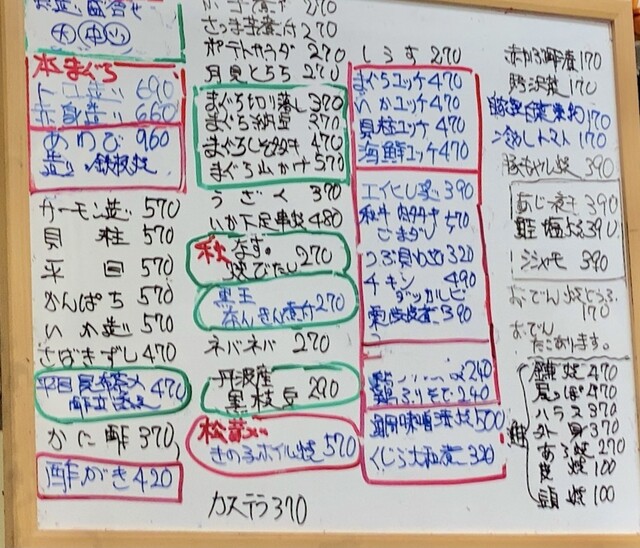 お造り盛合せ
大 中 小
本まぐろ
トロ造り 690
赤身造り 660
あわび 960
造り 鉄板焼
サーモン造り 570
貝柱 570
平目 570
かんぱち 570
いか造り 570
さばきずし 470
平目昆布〆 470
かに酢 370
酢がき 420
さつま芋煮付 270
ポテトサラダ 270
月見とろろ 270
まぐろ切り落し 370
まぐろ納豆 370
まぐろ 470
まぐろ山かけ 570
うざく 370
いか下足串焼 480
秋なす。
焼びたし 270
里玉
270
ネバネバ 270
丹波産
黒枝豆 270
松茸入り
きのこホイル焼 570
カステラ 370
しらす 270
まぐろユッケ 470
いかユッケ 470
貝柱ユッケ 470
海鮮ユッケ 470
エイヒレ 390
和牛肉タタキ 570
ごまダレ
つぶ貝わさ 320
チキン 490
ダッカルビ
390
240
240
味噌漬焼 500
くじら大和煮 390
170
野沢菜 170
170
冷しトマト 170
豚もやし炒 390
あじ 390
鮭塩 390
シシャモ 390
おでん
170
おでん
たこあります。
鮭
鎌焼 470
尾っぽ 470
ハラス 370
外貝 370
あら焼 270
皮焼 100
頭焼 100